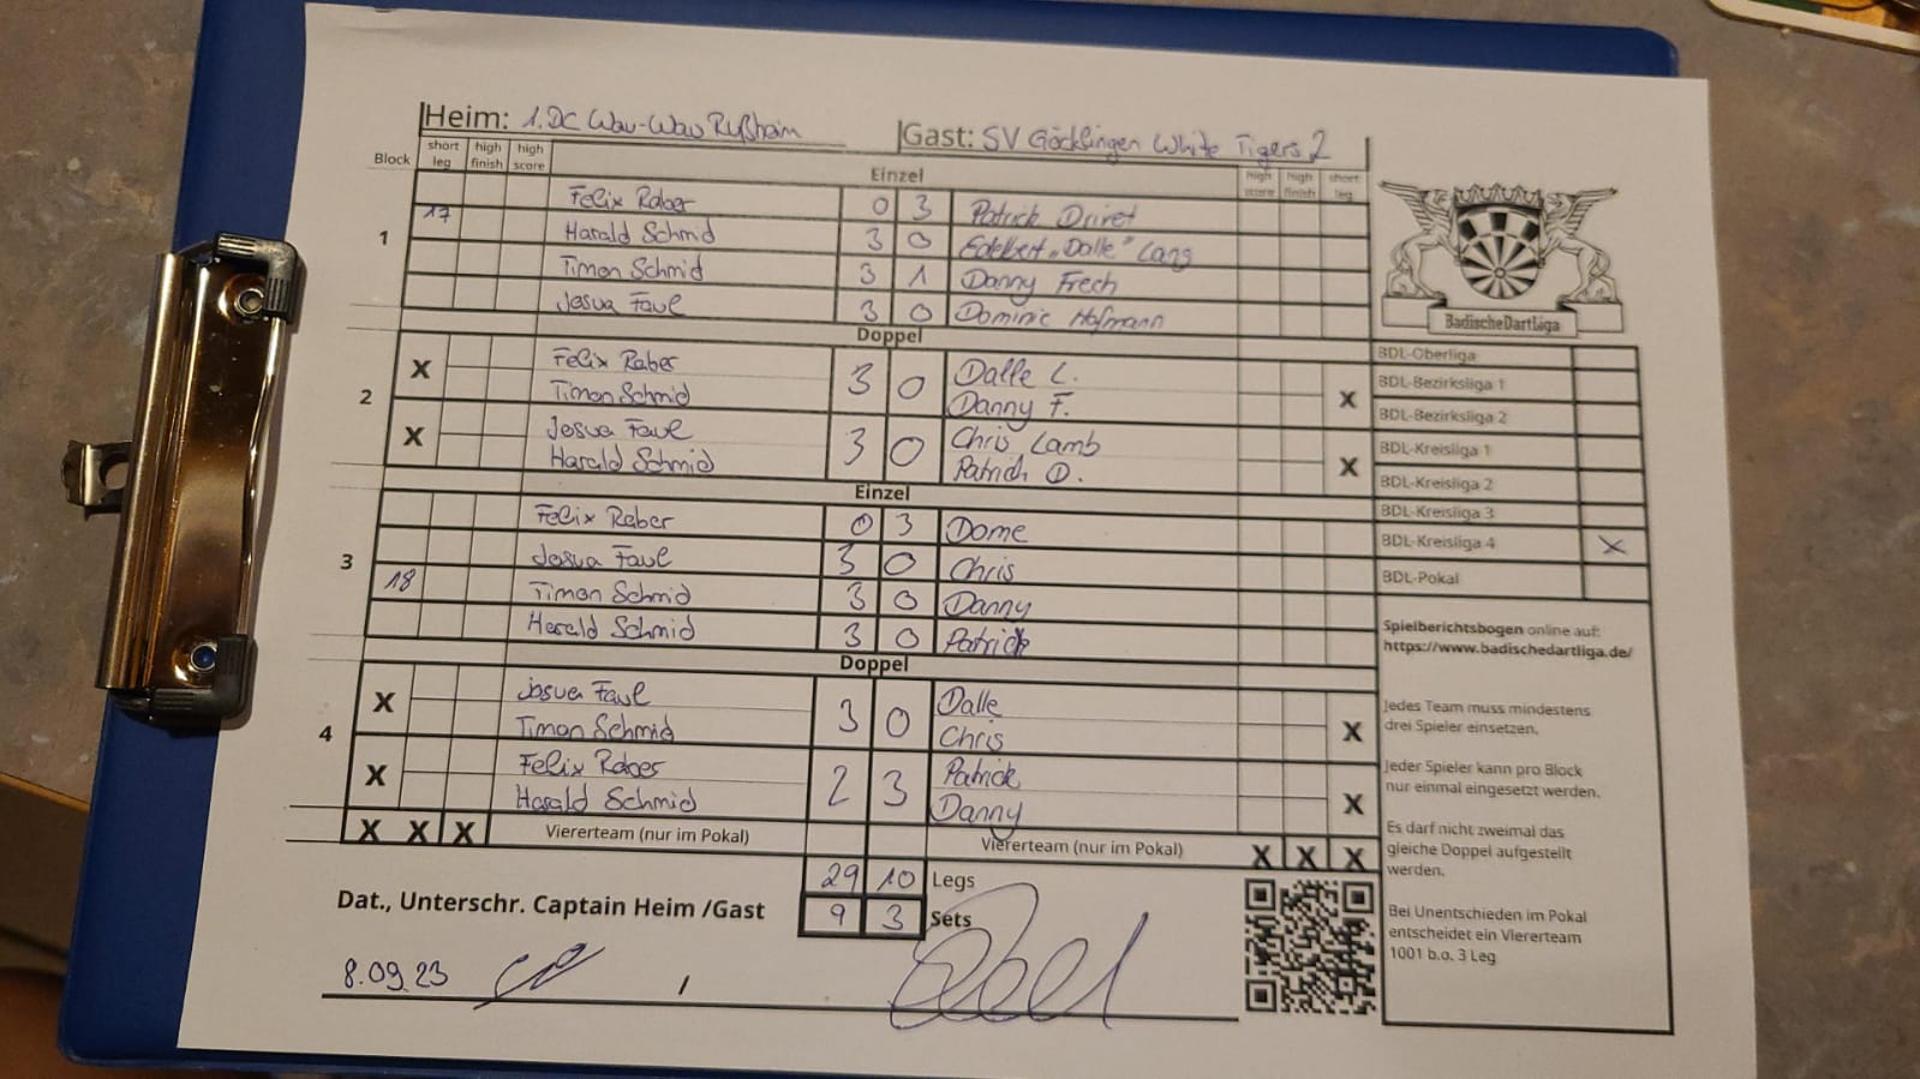 Heim: 1. DC Wau-Wau Rußheim Gast: SV Göcklingen White Tigers 2
Block short leg high finish high score Einzel high score high finish short leg
1
Felix Raber 0 3 Patrick Drivet
17 Harald Schmid 3 0 Edelbert "Dalle" Lang
Timon Schmid 3 1 Danny Frech
Josua Faul 3 0 Dominic Hofmann
Doppel
2
X Felix Raber 3 0 Dalle L. X
Timon Schmid Danny F.
X Josua Faul 3 0 Chris Lamb X
Harald Schmid Patrick D.
Einzel
3
Felix Raber 0 3 Dome
Josua Faul 3 0 Chris
18 Timon Schmid 3 0 Danny
Harald Schmid 3 0 Patrick
Doppel
4
X Josua Faul 3 0 Dalle X
Timon Schmid Chris
X Felix Raber 2 3 Patrick X
Harald Schmid Danny
X X X Viererteam (nur im Pokal) Viererteam (nur im Pokal) X X X
29 10 Legs
Dat., Unterschr. Captain Heim /Gast 9 3 Sets
8.09.23 /
BadischeDartLiga
BDL-Oberliga
BDL-Bezirksliga 1
BDL-Bezirksliga 2
BDL-Kreisliga 1
BDL-Kreisliga 2
BDL-Kreisliga 3
BDL-Kreisliga 4 X
BDL-Pokal
Spielberichtsbogen online auf:
https://www.badischedartliga.de/
Jedes Team muss mindestens
drei Spieler einsetzen.
Jeder Spieler kann pro Block
nur einmal eingesetzt werden.
Es darf nicht zweimal das
gleiche Doppel aufgestellt
werden.
Bei Unentschieden im Pokal
entscheidet ein Viererteam
1001 b.o. 3 Leg